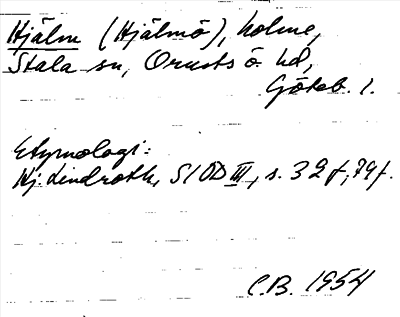 Hjälm (Hjälmö), holme,
Stala sn, Orusts ö. hd,
Göteb. l.
Etymologi:
Hj. Lindroth, SIOD III, s. 32 f, 79 f.
C.B. 1954